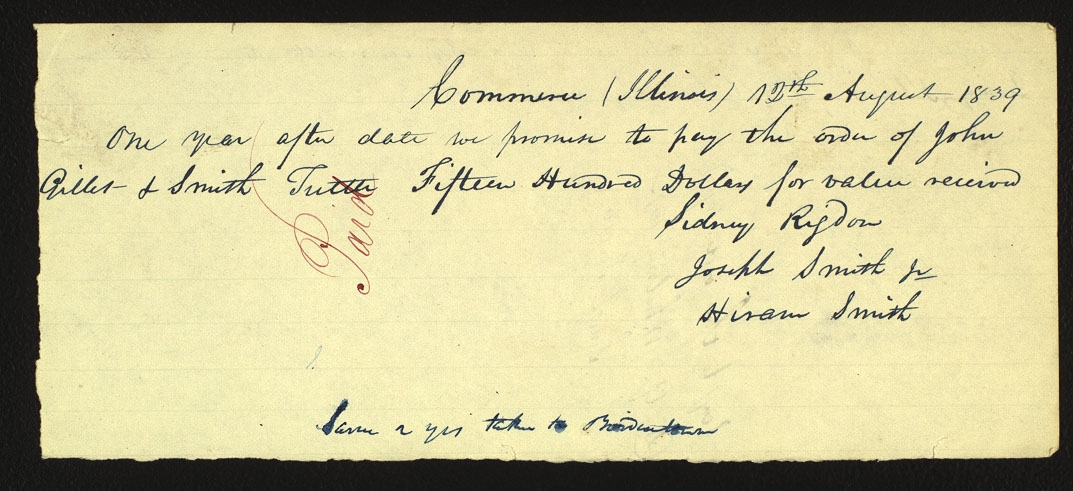 Commerce (Illinois) 12th August 1839
One year after date we promise to pay the order of John
Gillet & Smith Tuttle Fifteen Hundred Dollars for value received
Paid
Sidney Rigdon
Joseph Smith Jr
Hiram Smith
Same 2 yrs taken to Bordentown